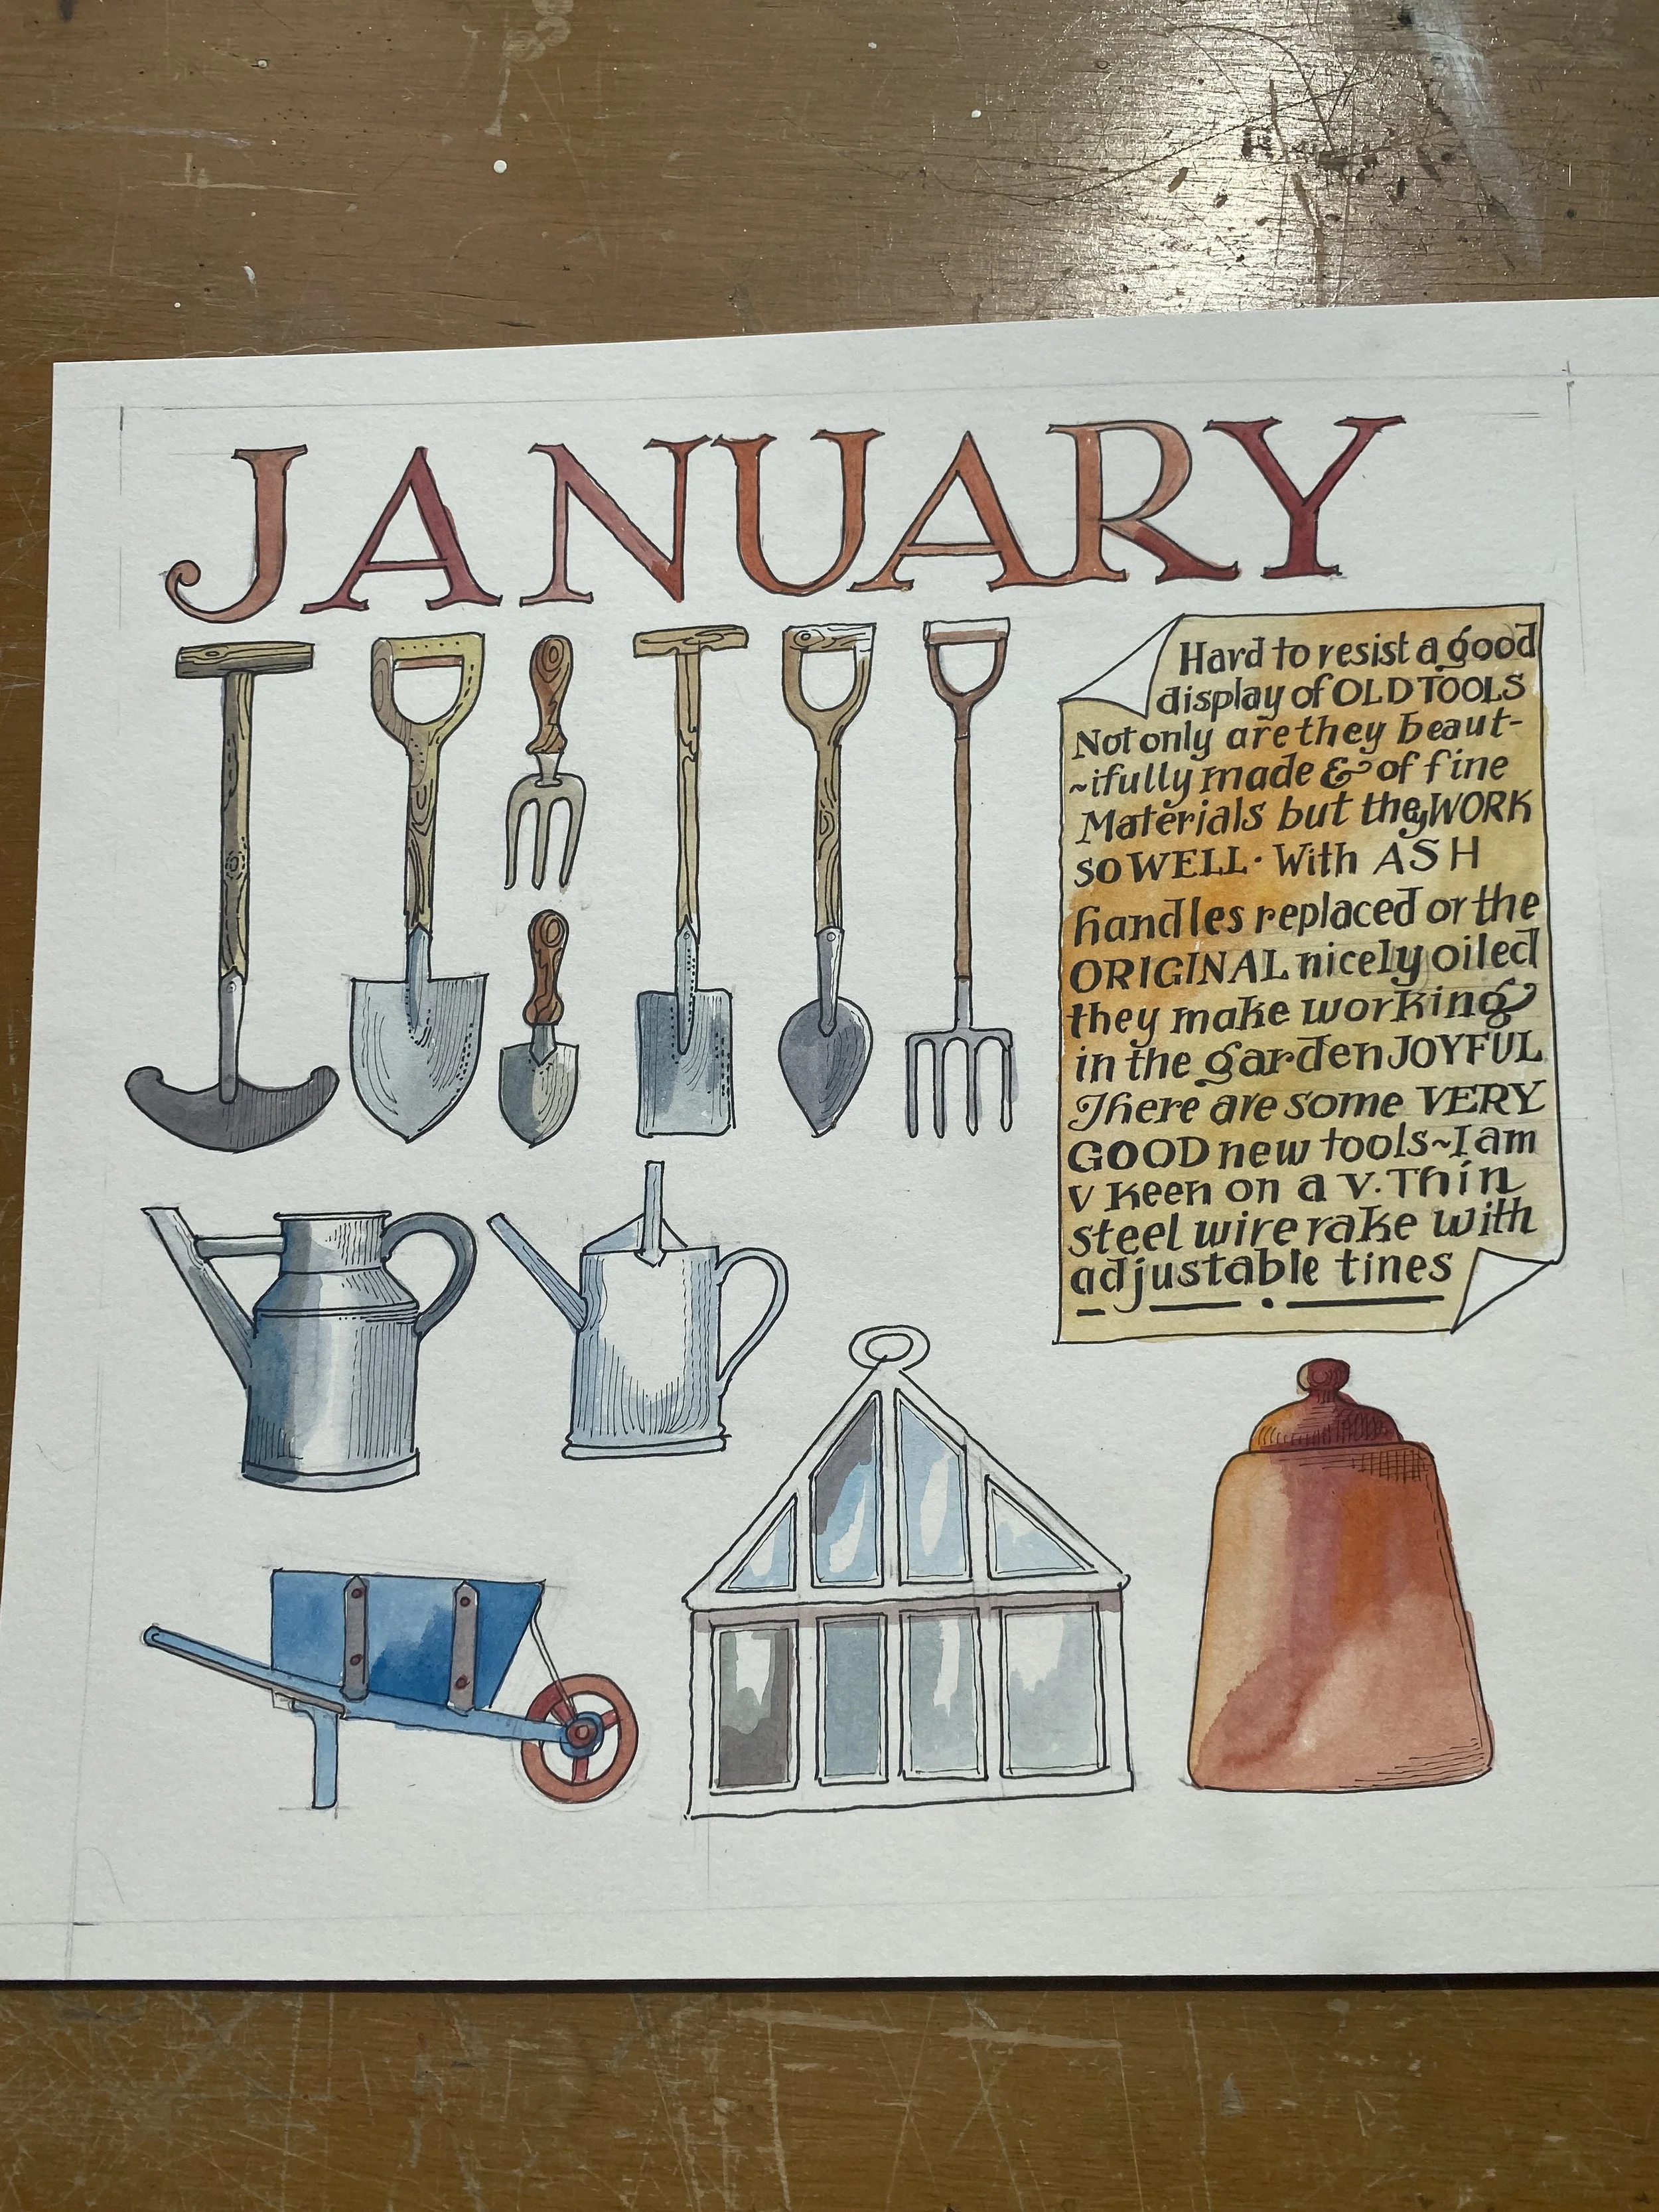 JANUARY
Hard to resist a good
display of OLD TOOLS
Not only are they beaut-
~ifully made & of fine
Materials but they WORK
SO WELL · With ASH
handles replaced or the
ORIGINAL nicely oiled
they make working
in the garden JOYFUL
There are some VERY
GOOD new tools~I am
v keen on a v. Thin
steel wire rake with
adjustable tines